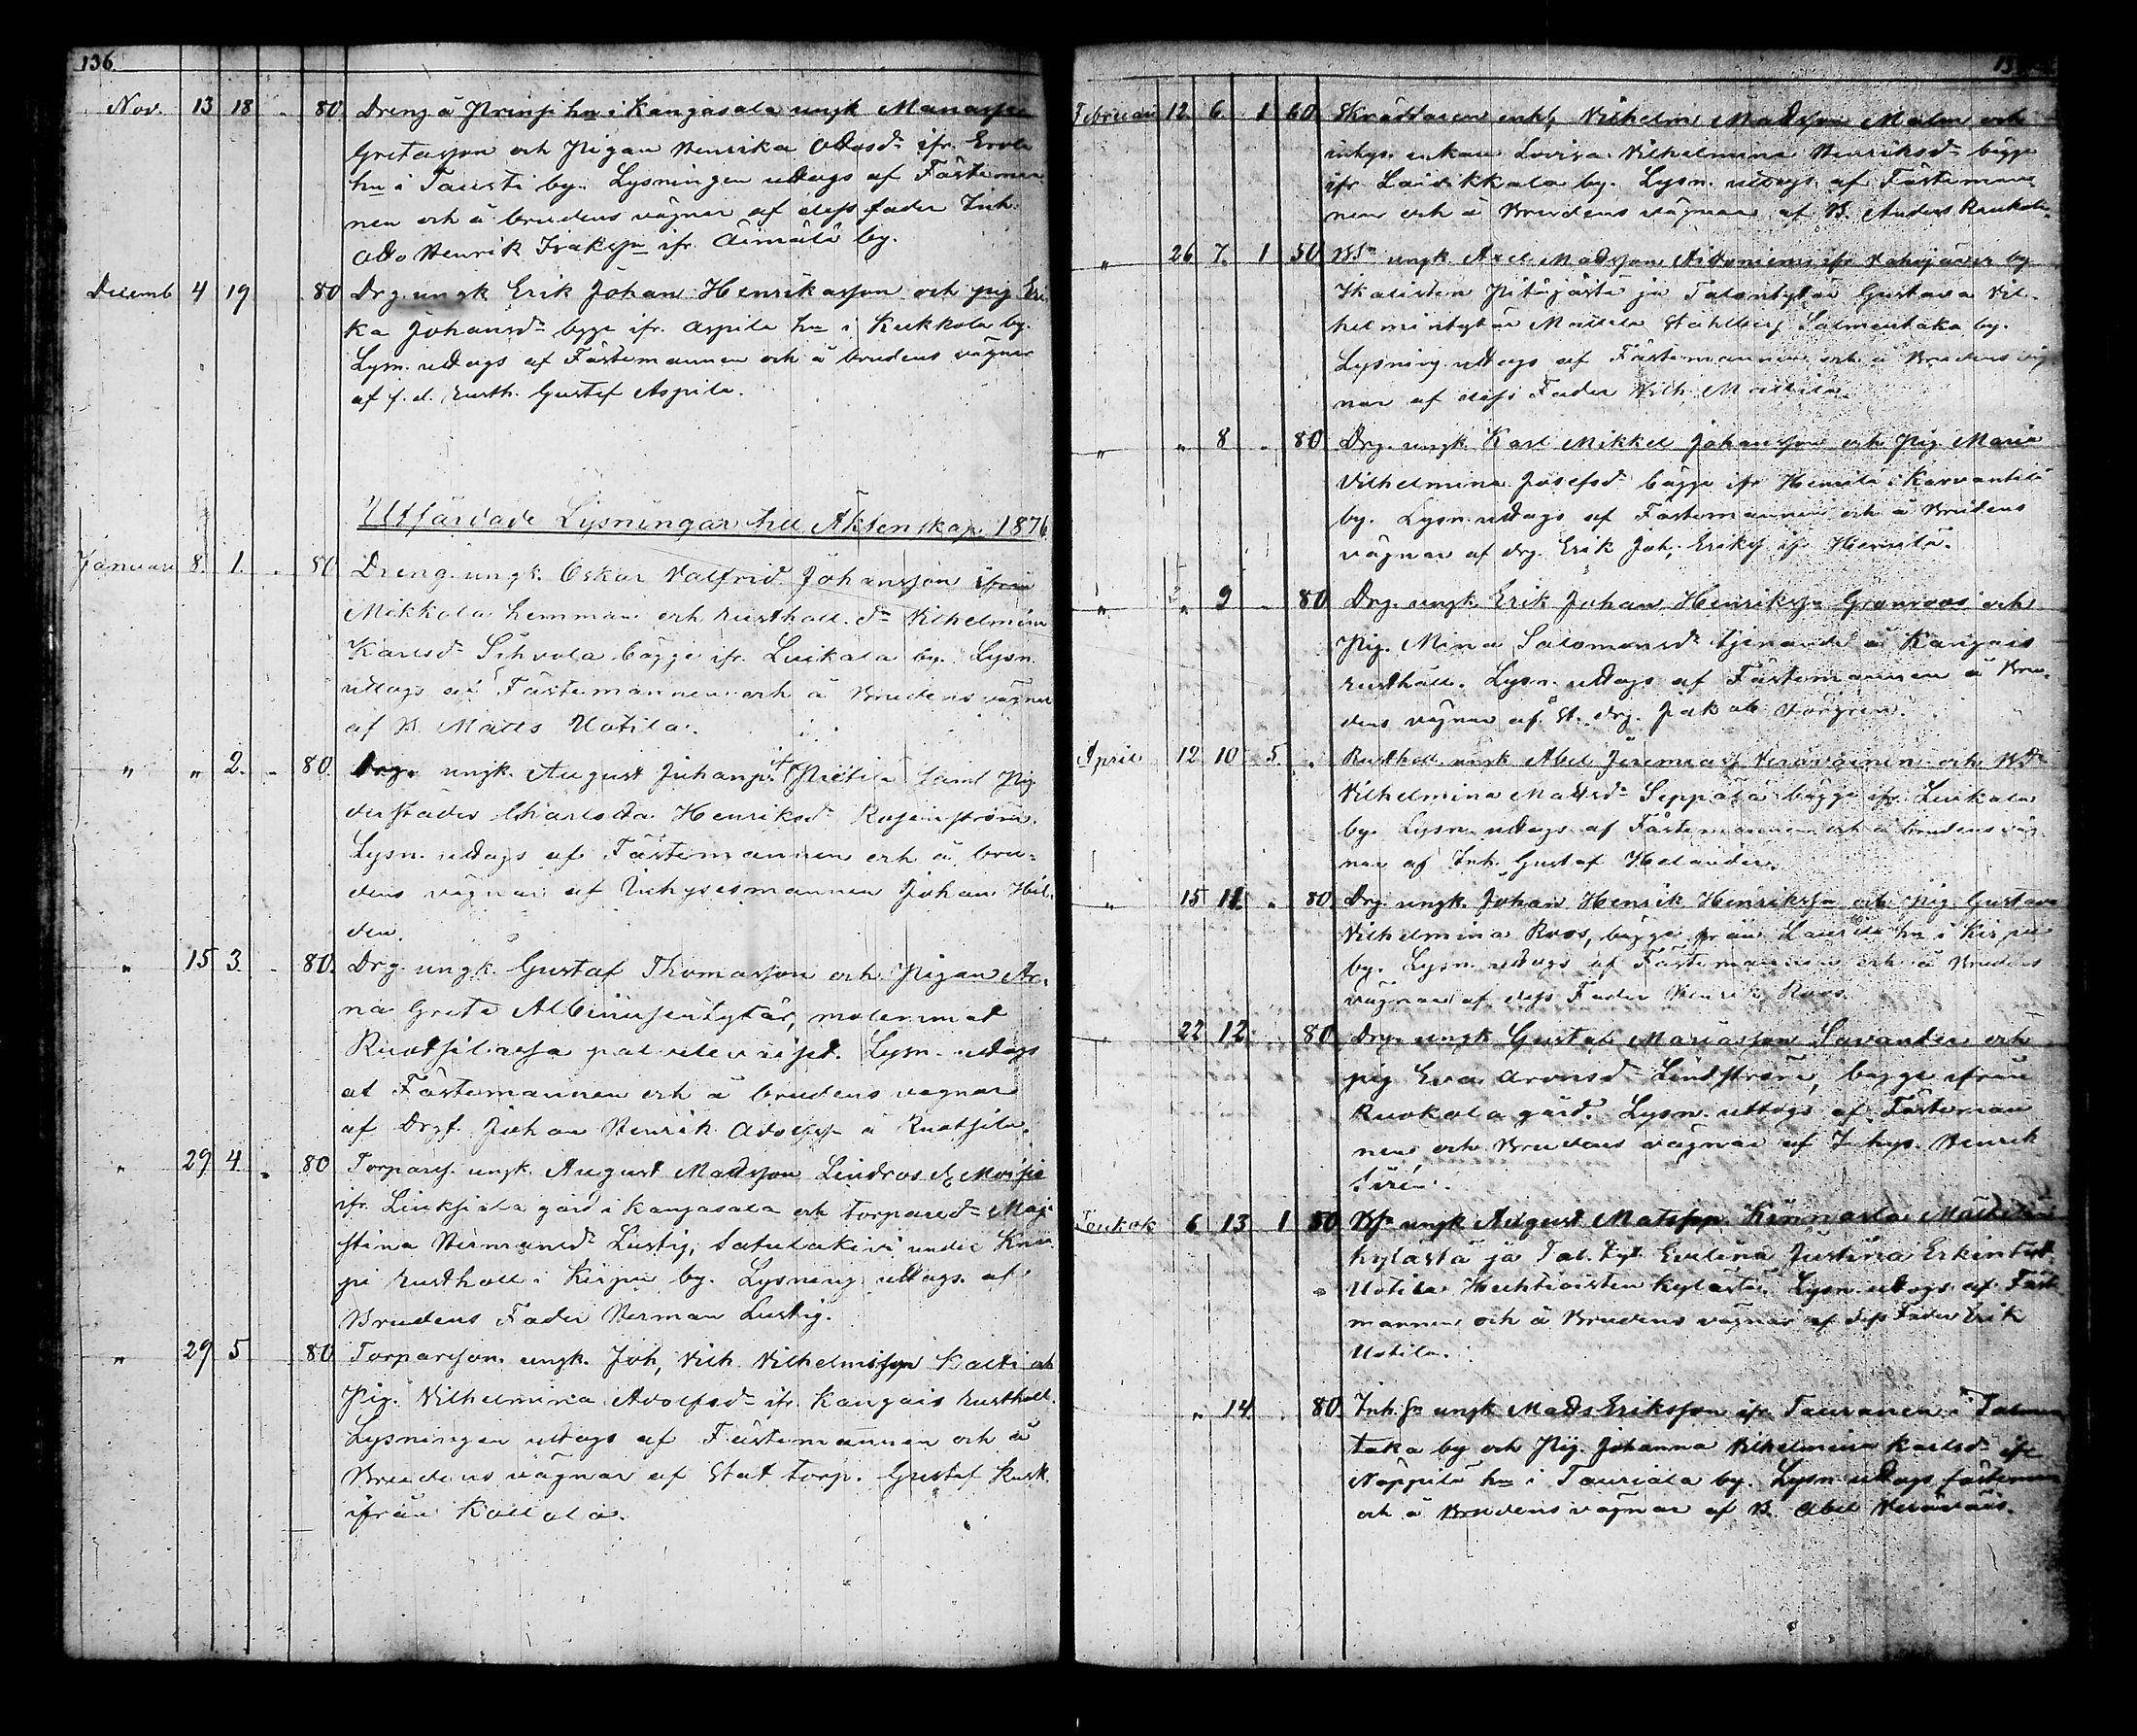 136
Nov. 13 18 - 80 Dreng å Prinsi hn i Kangasala ungk Manasse
Gretasson och Pigan Henrika Ottosdr ifr. Erola
hn i Tausti by. Lysningen uttogs af Fästeman
nen och å brudens vägnar af dess fader Inh.
Otto Henrik Isaksson ifr. Äimälä by.
Decemb 4 19 80 Drg. ungk Erik Johan Henriksson och pig Eri
ka Johansdr bgge ifr. Aspila hn i Kukkola by.
Lysn. uttogs af Fästemannen och å brudens vägnar
af f. d. Rusth. Gustaf Aspila.
Utfärdade Lysningar till Äktenskap 1876
Januari 8. 1. - 80 Dreng ungk. Oskar Valfrid Johansson ifrån
Mikkola hemman och rusthåll. dr Vilhelmina
Karlsdr Sihvola bägge ifr. Luikala by. Lysn.
uttogs af Fästemannen och å Brudens vägnar
af B. Matts Uotila.
" " 2. - 80. Drg. ungk. August Johanss. ifr Pietilä samt Pig
derstädes Charlotta Henriksdr Rosenström.
Lysn. uttogs af Fästemannen och å bru-
dens vägnar af Inhysesmannen Johan Hil-
den.
" 15 3. - 80. Drg. ungk. Gustaf Thomasson och Pigan An-
na Greta Albinusentytär, molemmat
Ruotsilassa palvelevaiset. Lysn. uttogs
af Fästemannen och å brudens vägnar
af Drgf. Johan Henrik Adolfsson å Ruotsila.
" 29 4. - 80 Torpares. ungk. August Mattsson Lindros
ifr. Liuksiala gård i Kangasala och torparedr Maja
Stina Hermansdr Lustig, Satulakivi under
rusthåll i Kirpu by. Lysning uttogs af
Brudens Fader Herman Lustig.
" 29 5 80 Torparson. ungk. Joh. Vilh. Vilhelmsson Kalti och
Pig. Vilhelmina Adolfsdr ifr. Kangais rusthåll.
Lysningen uttogs af Fästemannen och å
Brudens vägnar af Stat torp. Gustaf Rusk.
ifrån Kollola.
Februari 12. 6. 1 60 Skräddaren enkl. Vilhelm Mattsson Malm och
inhys. enkan Lovisa Vilhelmina Henriksdr bägge
ifr Laivikkala by. Lysn. uttogs af Fästeman
nen och å Brudens vägnar af B. Anders
" 26 7. 1 50 Bs. ungk Axel Mattsson ifr Vahojärvi by
Ikalisten Pitäjästä ja Talontytär Gustava Vil-
helmintytär Mattila Ståhlberg Salmentaka by.
Lysning uttogs af Fästemannen och å Brudens väg
nar af dess Fader Vilh. Mattila.
" " 8 - 80 Drg. ungk. Karl Mikkel Johansson och Pig. Maria
Vilhelmina Josefsdr bägge ifr Heusala i Karvantila
by. Lysn. uttogs af Fästemannen och å Brudens
vägnar af drg. Erik Joh. Eriks. ifr
" " 9 - 80 Drg. ungk. Erik Johan Henriksson Grönroos och
Pig. Mina Salomonsdr tjenande å Kangais
rusthåll. Lysn. uttogs af Fästemannen å Bru-
dens vägnar af St. drg. Jakob
April 12 10 5. - Rusthåll. ungk Abel Jeremias. Heravainen och Bdr
Vilhelmina Mattsdr Seppälä bägge ifr. Luikala
by. Lysn. uttogs af Fästemannen och å brudens väg
nar af Inh. Gustaf Helander.
" 15 11. - 80. Drg. ungk. Johan Henrik Henriksson och pig Gustava
Vilhelmina Roos, bägge från Laurila hn i Kirpu
by. Lysn. uttogs af Fästemannen och å Brudens
vägnar af dess Fader Henrik Roos.
22 12. 80 Drg. ungk Gustaf Mariasson Savander och
pig Eva Aronsdr Lindström, bägge ifrån
Ruokola gård. Lysn. uttogs af Fästeman
nen och Brudens vägnar af Inhys. Henrik
Sirén.
Toukok 6 13 1 80 Bs. ungk August Matsspn. Kinnarla
kylästä ja Tal. tyt. Evelina Justina Erkint.
Uotila Huhtioisten kylästä. Lysn. uttogs af Fäst
mannen och å Brudens vägnar af dess Fader Erik
Uotila.
" 14 - 80. Inh. sn ungk Matts Eriksson ifr. Tauranen i
taka by och Pig. Johanna Vilhelmina Karlsdr ifr
Näppilä hn i Tauriala by. Lysn uttogs fästeman
och å Brudens vägnar af B. Abel